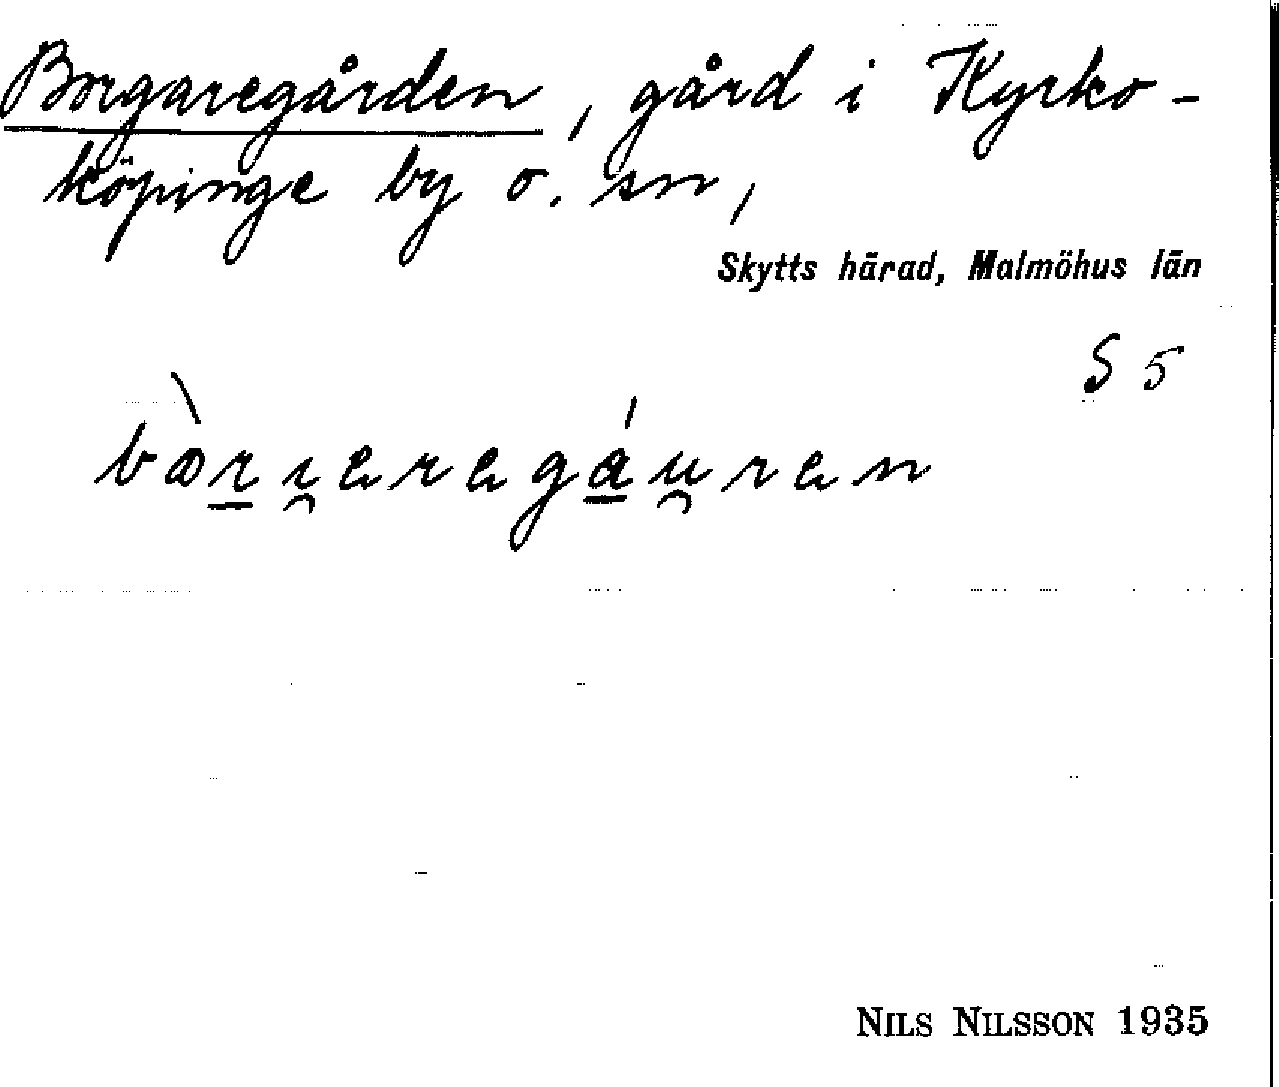 Borgaregården, gård i Kyrko-
köpinge by o. sn,
Skytts härad, Malmöhus län
S 5
NILS NILSSON 1935